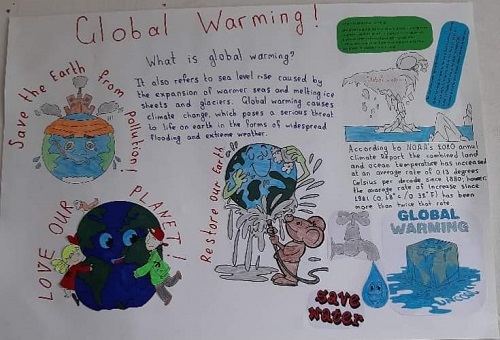 Global Warming!
What is global warming?
It also refers to sea level rise caused by
the expansion of warmer seas and melting ice
sheets and glaciers. Global warming causes
climate change, which poses a serious threat
to life on earth in the forms of widespread
flooding and extreme weather.
Save the Earth from Pollution!
LOVE OUR PLANET!
Restore Our Earth
According to NOAA's 2020 annual
Climate Report the combined land
and ocean temperature has increased
at an average rate of 0.13 degrees
Celsius per decade since 1880; however,
the average rate of increase since
1981 (0.18°C / 0.32°F) has been
more than twice that rate
GLOBAL
WARMING
save
water